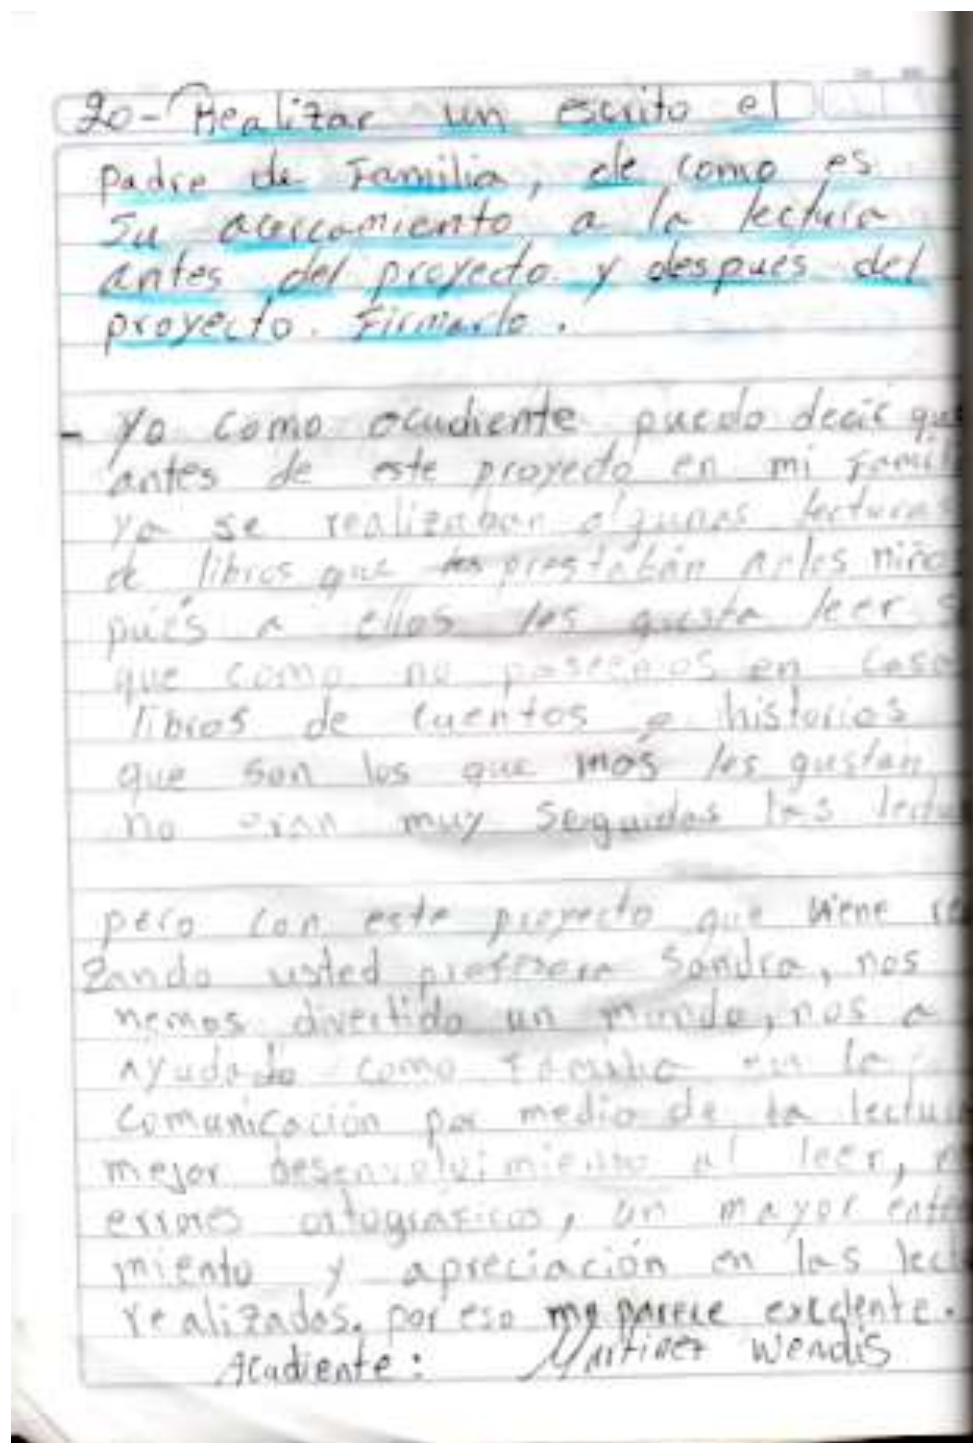 20- Realizar un escrito el
padre de Familia, de como es
Su acercamiento a la lectura
antes del proyecto y despues del
proyecto. Firmarlo.
- Yo como acudiente puedo decir que
antes de este proyecto en mi Famil
ya se realizaban algunas lecturas
de libros que prestaban a los niño
pués a ellos les gusta leer s
que como no poseemos en casa
libros de cuentos o historias
que son los que más les gustan
no eran muy seguidas las lectu
pero con este proyecto que viene re
zando usted profesora Sandra, nos
hemos divertido un mundo, nos a
ayudado como Familia en la
comunicación por medio de la lectu
mejor desenvolvimiento al leer,
errores ortograficos, un mayor ente
miento y apreciación en las lect
realizadas. por eso me parece excelente.
Acudiente: Martinez Wendis